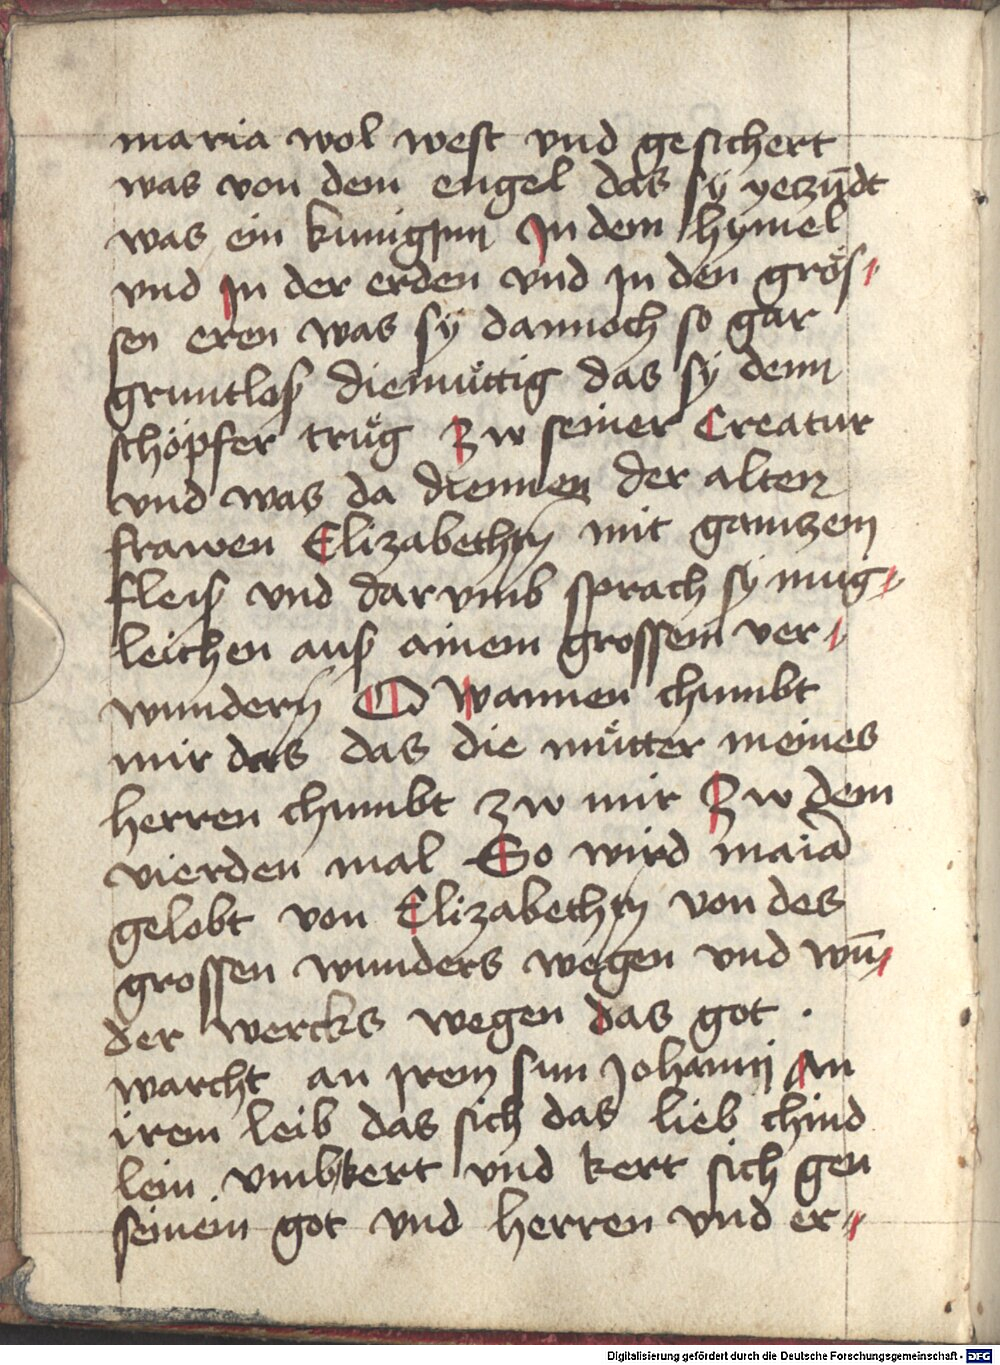 maria wol west vnd gesichert
was von dem engel das sÿ yeczūdt
was ein kunigjnn Jn dem hymel
vnd Jn der erden vnd jn den grös⸗
sen eren was sÿ dannoch so gar
gruntlos diemüttig das sÿ denn
schöpfer trůg Zw seiner Creatur
vnd was da diennen der alten
frawen Elizabethen mit gantzem
fleis vnd darvmb sprach sy mug⸗
leichen aus ainem grossem ver⸗
wundern O wannen chumbt
mir das das die můtter meines
herren chumbt zw mir Zw dem
vierden mal So wird maia
gelobt von Elizabethen von des
grossen wunders wegen vnd wū⸗
der wercks wegen das got .
warcht an jrem sun Johannj An
irem leib das sich das lieb chind
lein vmbkert vnd kert sich gen
seinem got vnd herren vnd er⸗
Digitalisierung gefördert durch die Deutsche Forschungsgemeinschaft - DFG